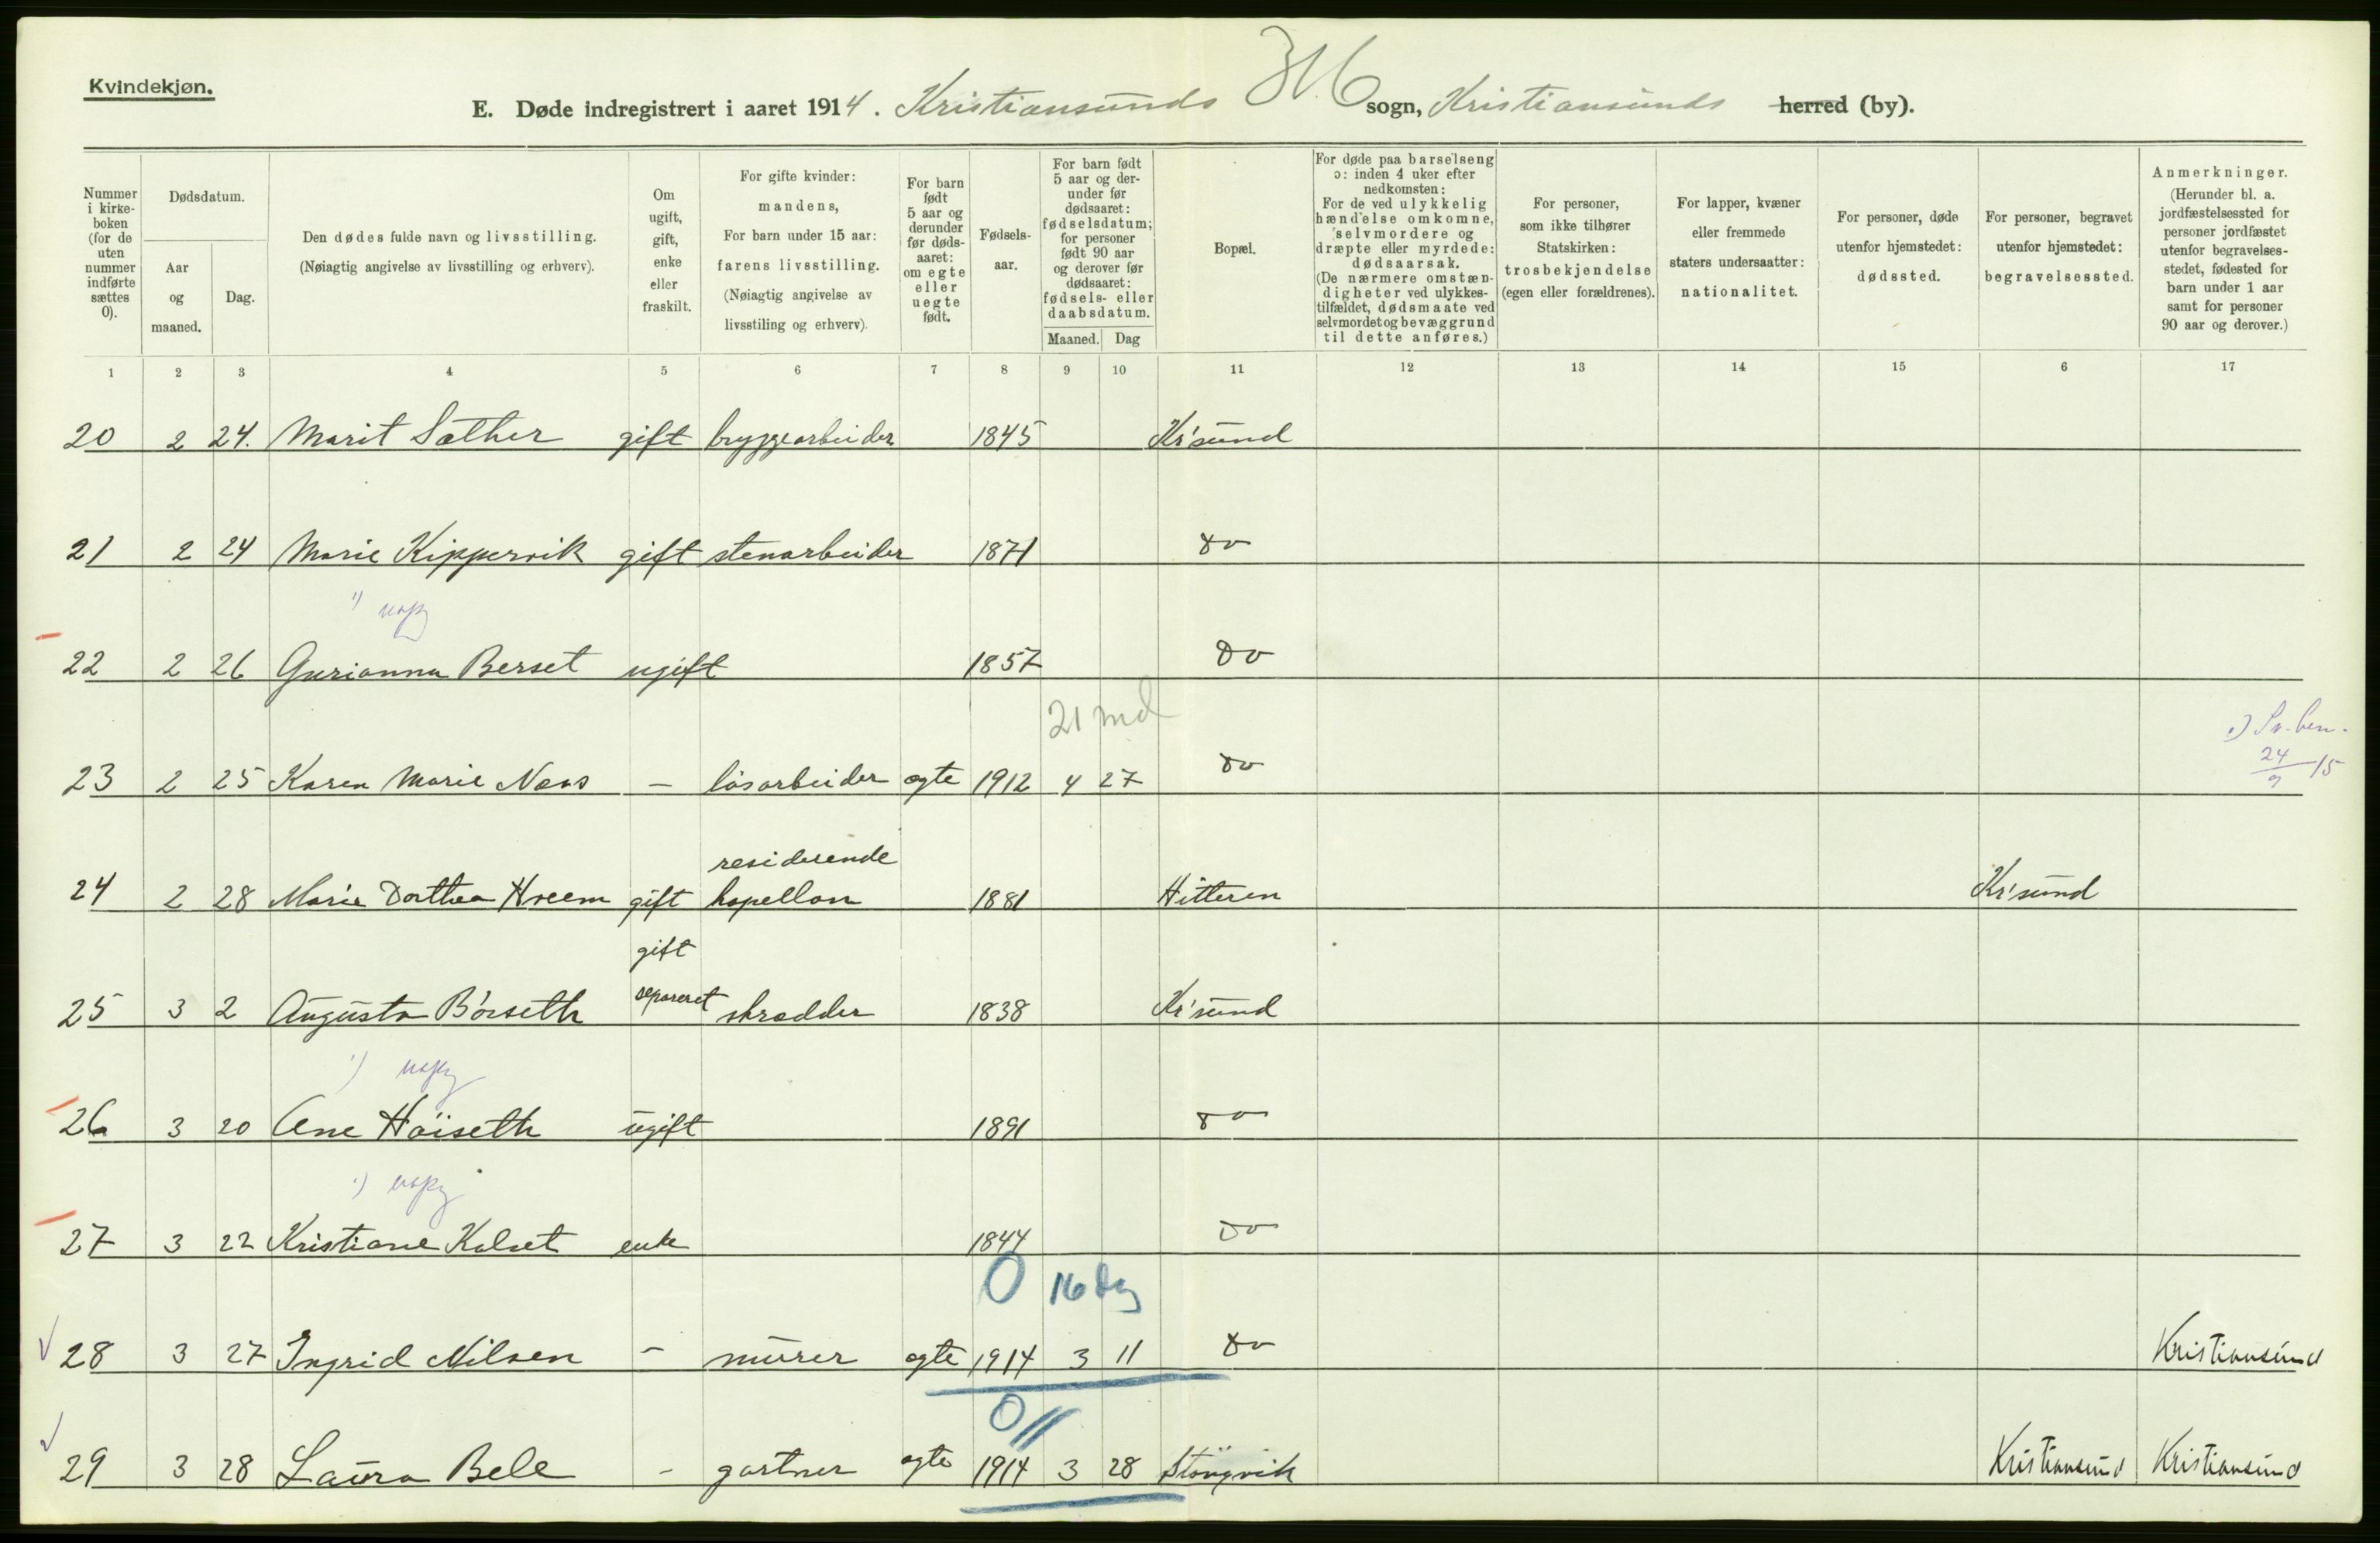 Kvindekjøn.
E. Døde indregistrert i aaret 1914. Kristiansunds 316 sogn, Kristiansunds herred (by).
Nummer i kirkeboken (for de uten nummer indførte sættes 0).
Dødsdatum.
Aar og maaned.
Dag.
Den dødes fulde navn og livsstilling.
(Nøiagtig angivelse av livsstilling og erhverv).
Om ugift, gift, enke eller fraskilt.
For gifte kvinder: mandens,
For barn under 15 aar: farens livsstilling.
(Nøiagtig angivelse av livsstiling og erhverv).
For barn født 5 aar og derunder før dødsaaret: om egte eller uegte født.
Fødselsaar.
For barn født 5 aar og derunder før dødsaaret: fødselsdatum; for personer født 90 aar og derover før dødsaaret: fødsels- eller daabsdatum.
Maaned. Dag
Bopæl.
For døde paa barselseng ɔ: inden 4 uker efter nedkomsten:
For de ved ulykkelig hændelse omkomne, selvmordere og dræpte eller myrdede: dødsaarsak.
(De nærmere omstændigheter ved ulykkestilfældet, dødsmaate ved selvmordet og bevæggrund til dette anføres.)
For personer, som ikke tilhører Statskirken: trosbekjendelse (egen eller forældrenes).
For lapper, kvæner eller fremmede staters undersaatter: nationalitet.
For personer, døde utenfor hjemstedet: dødssted.
For personer, begravet utenfor hjemstedet: begravelsessted.
Anmerkninger.
(Herunder bl. a. jordfæstelsessted for personer jordfæstet utenfor begravelsesstedet, fødested for barn under 1 aar samt for personer 90 aar og derover.)
1 2 3 4 5 6 7 8 9 10 11 12 13 14 15 6 17
20 2 24. Marit Sæther gift bryggearbeider 1845 Kr'sund
21 2 24 Marie Kippervik gift stenarbeider 1871 do
1)
22 2 26 Gurianna Berset ugift 1857 do
21 md
23 2 25 Karen Marie Næss – løsarbeider egte 1912 4 27 do
1) 24/9 15
residerende
24 2 28 Marie Dorthea Hreem gift kapellan 1881 Hitteren Kr'sund
gift
25 3 2 Augusta Børseth separeret skrædder 1838 Kr'sund
1)
26 3 20 Ane Høiseth ugift 1891 do
1)
27 3 22 Kristiane Kalset enke 1844 do
0 16 dg
28 3 27 Ingrid Nilsen – murer egte 1914 3 11 do Kristiansund
0 //
29 3 28 Laura Bele – gartner egte 1914 3 28 Stångvik Kristiansund Kristiansund